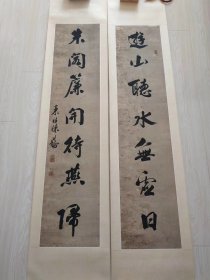 遊山聽水無虛日
未閣簾開待燕歸